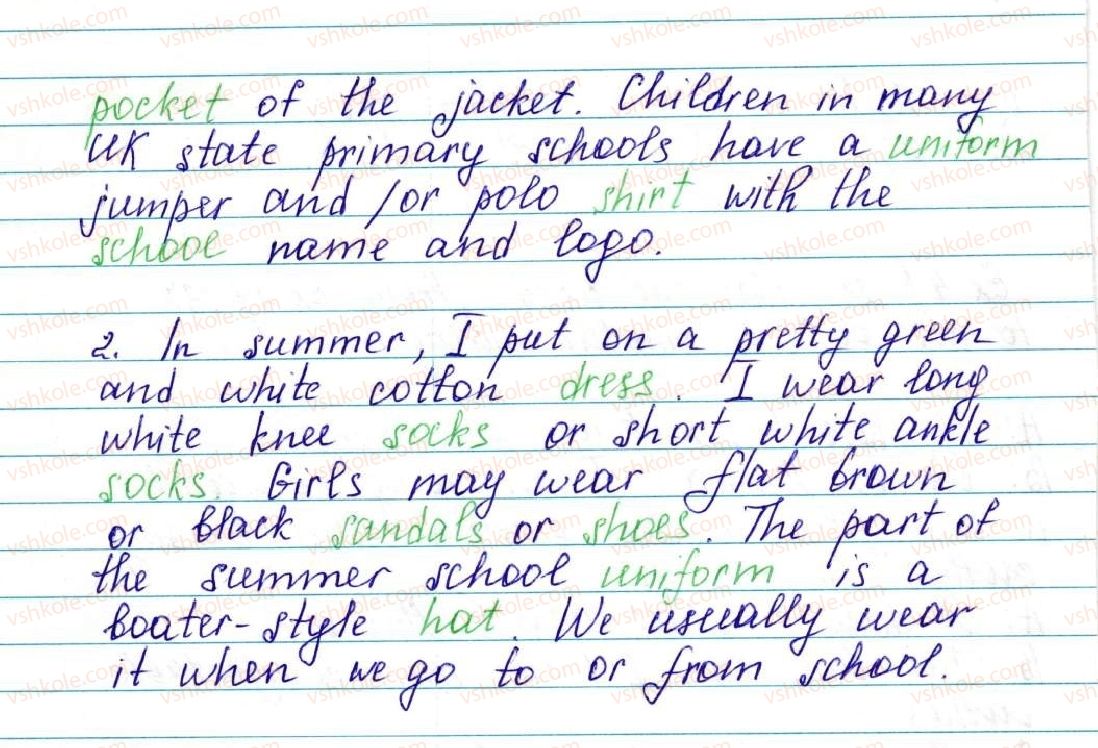 pocket of the jacket. Children in many
UK state primary schools have a uniform
jumper and /or polo shirt with the
school name and logo.
2. In summer, I put on a pretty green
and white cotton dress. I wear long
white knee socks or short white ankle
socks. Girls may wear flat brown
or black sandals or shoes. The part of
the summer school uniform is a
boater-style hat. We usually wear
it when we go to or from school.